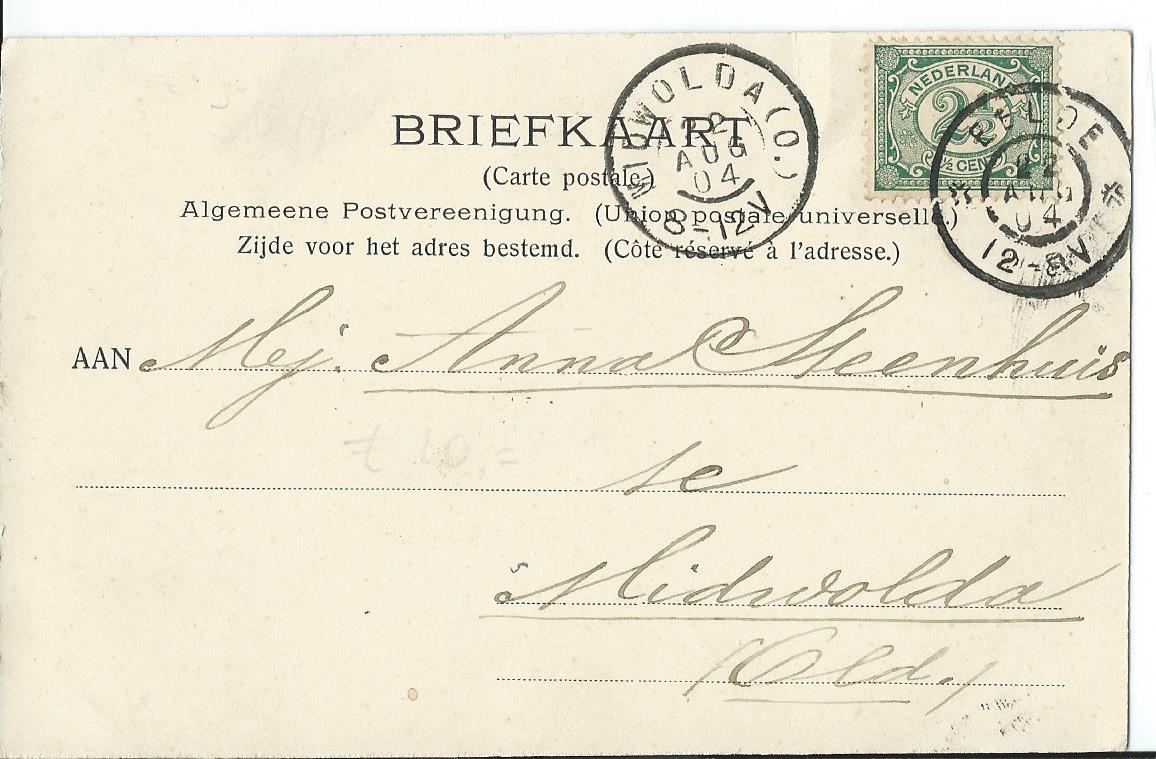 BRIEFKAART
(Carte postale.)
Algemeene Postvereenigung. (Union postale universelle.)
Zijde voor het adres bestemd. (Côté réservé à l'adresse.)
MIDWOLDA (O.)
22
AUG
04
8-12V
NEDERLAND
2½
2½ CENT
EELDE
22
AUG
04
12-8V
AAN Mej. Anna Meenhuis
te
Midwolda
(Old.)
ƒ 10,=